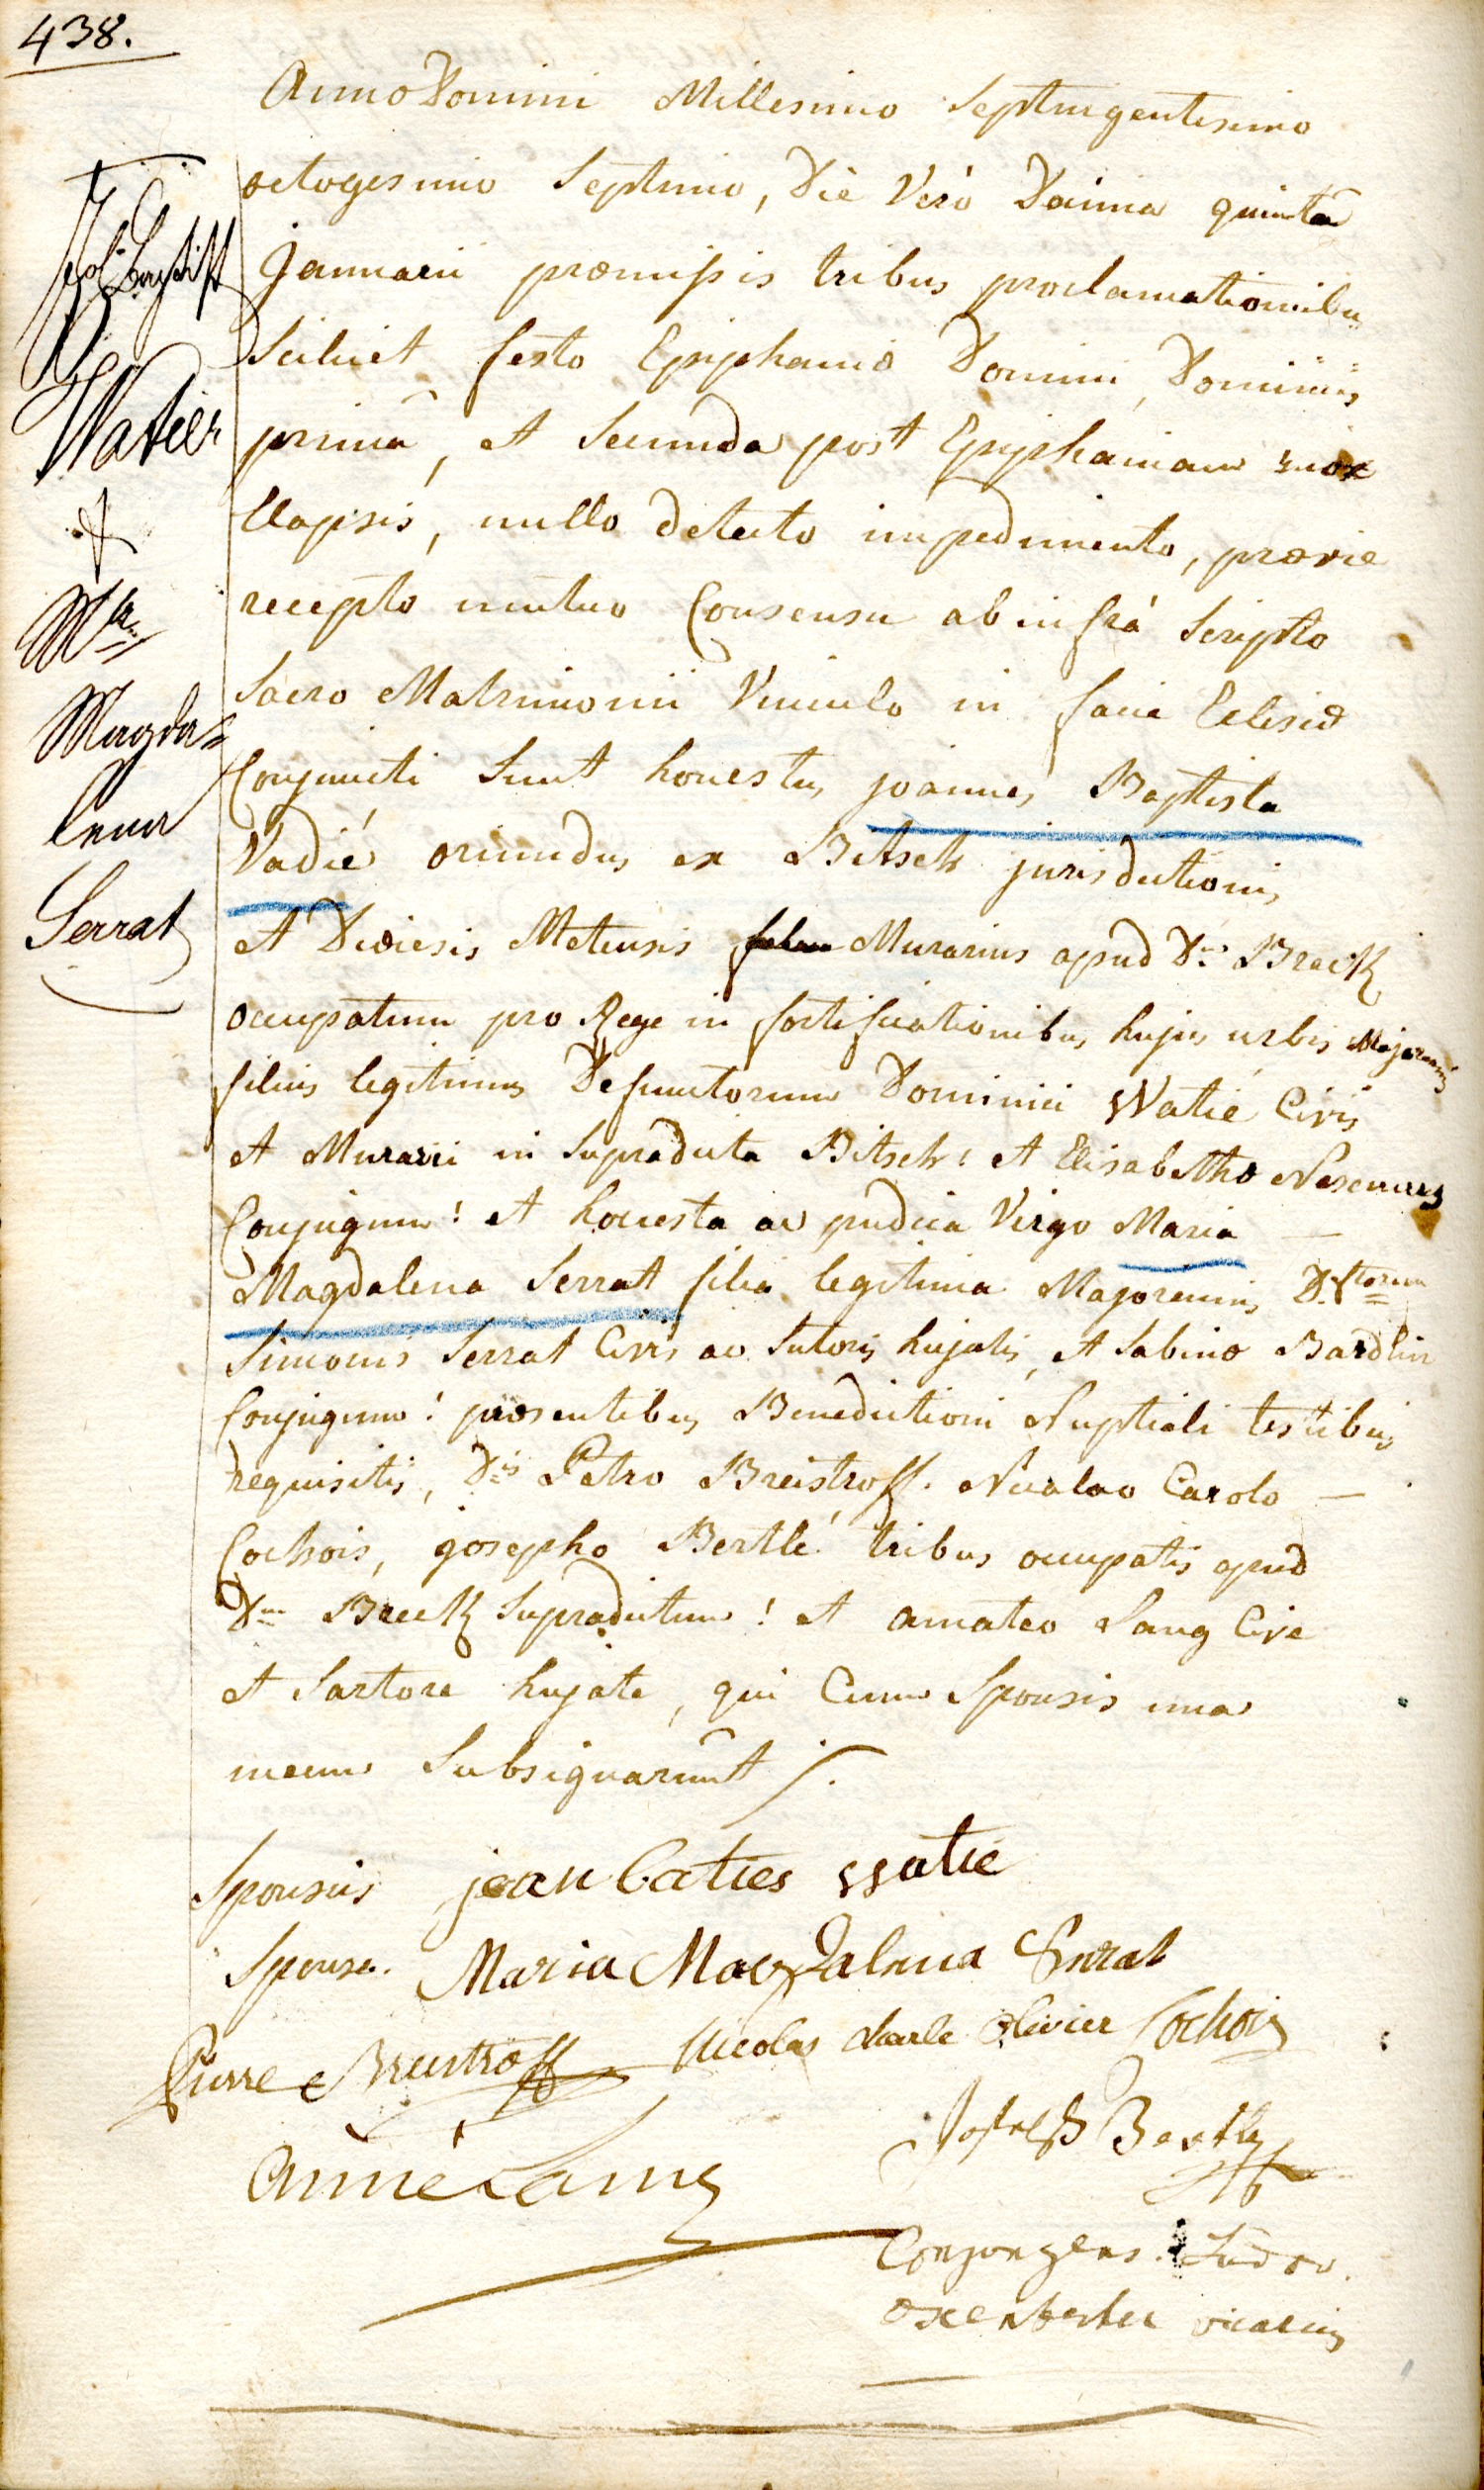 438.
Anno Domini Millesimo Septuigentesimo
octogesimo Septimo, Die Verò Decima quinta
Januarii præmissis tribus proclamationibus
Scilicet festo Epiphaniæ Domini, Dominicis
prima, et Secunda post Epiphaniam mox
Elapsis, nullo detecto impedimento, prævie
recepto mutuo Consensu ab infrá Scripto
Sacro Matrimonii Vinculo in facie Eclesiæ
Conjuncti Sunt honestus joannes Baptista
Vadié oriundus ex Bitsch jurisdictionis
et Diœiesis Metensis Murarius apud Dnm BrecK
occupatum pro Rege in fortificationibus hujus urbis Majorennis
filius legitimus Defunctorum Dominici Watié Civis
et Murarii in Supradicta Bitsch! et Elisabethæ
Conjugum! et honesta ac pudica Virgo Maria —
Magdalena Serrat filia legitima Majorennis D.ftorum
Simonis Serrat Civis ac Sutoris hujatis, et Sabinæ Bardlin
Conjugum! præsentibus Benedictioni Nuptiali testibus
requisitis, Dnis Petro Breistroff. Nicolao Carolo —
Cochois, josepho Bertlé! tribus occupatis apud
Dnm BrecK Supradictum! et amateo Lang Cive
et Sartore hujate, qui Cum Sponsis una
mecum Subsignarunt /.
Joh. Baptist
Watier
&
Mia
Magda=
lena
Serrat
Sponsus jean baties Watié
Sponsa. Maria Magdalena Serrat
Pierre Breistroff Nicolas charle Olivier Cochois
Joseph Bertle
aimé Lang
Conjungens. Ludov.
oxenhester vicarius